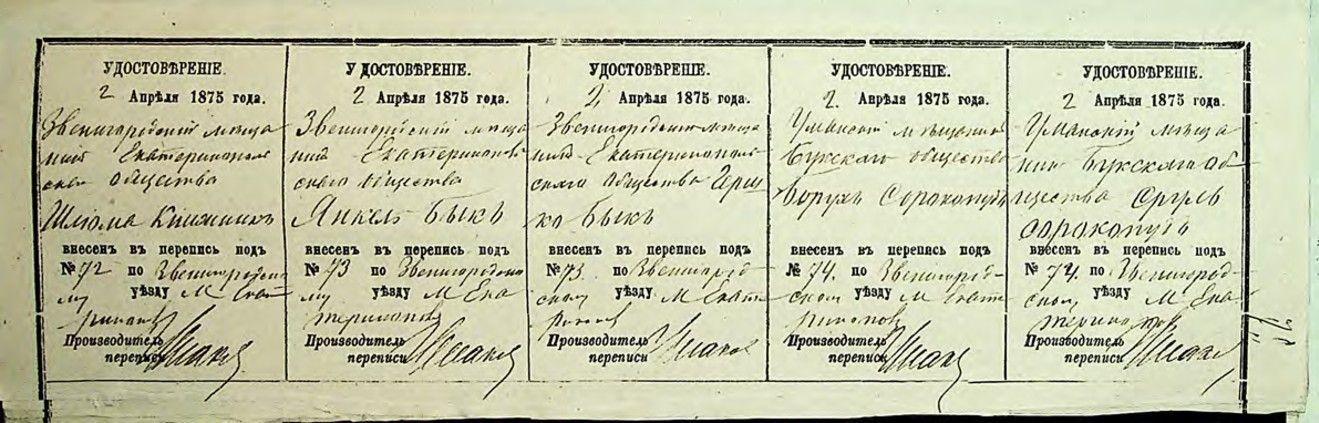 УДОСТОВѢРЕНІЕ.
2 Апрѣля 1875 года.
Звенигородскій мѣща
нинъ Екатеринополь
скаго общества
Шлёма Книжникъ
внесенъ въ перепись подъ
№ 72 по Звенигородско
му уѣзду М Екат
ринопол
Производитель
переписи
УДОСТОВѢРЕНІЕ.
2 Апрѣля 1875 года.
Звенигородскій мѣща
нинъ Екатеринополь
скаго общества
Янкель Быкъ
внесенъ въ перепись подъ
№ 73 по Звенигородско
му уѣзду М Ека
теринопол
Производитель
переписи
УДОСТОВѢРЕНІЕ.
2 Апрѣля 1875 года.
Звенигородскій мѣща
нинъ Екатеринополь
скаго общества Герш
ко Быкъ
внесенъ въ перепись подъ
№ 73. по Звенигород-
скому уѣзду М Екате
ринопол
Производитель
переписи
УДОСТОВѢРЕНІЕ.
2. Апрѣля 1875 года.
Уманскій мѣщанинъ
Букскаго общества
Борухъ Сорокопудъ
внесенъ въ перепись подъ
№ 74. по Звенигород-
скому уѣзду М Екате
ринопол
Производитель
переписи
УДОСТОВѢРЕНІЕ.
2 Апрѣля 1875 года.
Уманскій мѣща
нинъ Букскаго об
щества Сруль
Сорокопудъ
внесенъ въ перепись подъ
№ 74. по Звенигород-
скому уѣзду М Ека
теринопол
Производитель
переписи